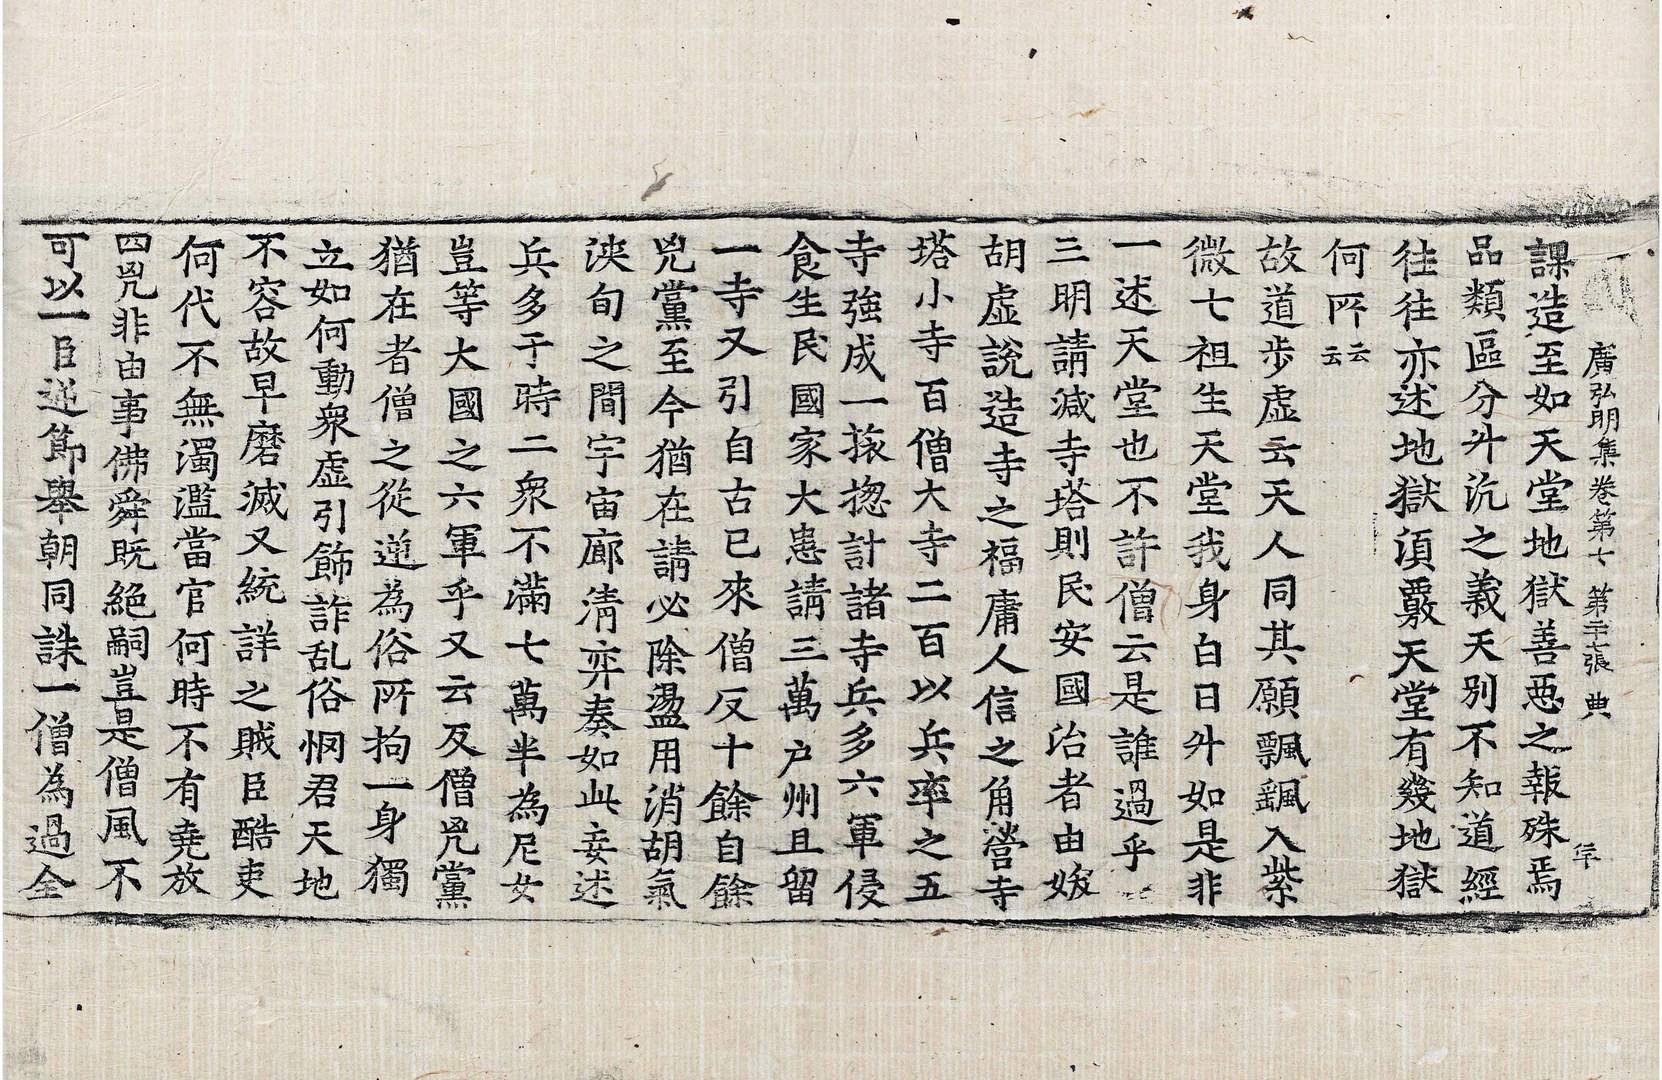 廣弘明集卷第七 第二十七張 典
課造至如天堂地獄善惡之報殊焉
品類區分升沉之義天別不知道經
往往亦述地獄湏覈天堂有幾地獄
何所云云
故道步虛云天人同其願飄飖入紫
微七祖生天堂我身白日升如是非
一述天堂也不許僧云是誰過乎
三明請減寺塔則民安國治者由妭
胡虛說造寺之福庸人信之角營寺
塔小寺百僧大寺二百以兵率之五
寺強成一旅揔計諸寺兵多六軍侵
食生民國家大患請三萬户州且留
一寺又引自古已來僧反十餘自餘
兇黨至今猶在請必除盪用消胡氣
浹旬之間宇宙廊清弈奏如此妄述
兵多于時二衆不滿七萬半為尼女
豈等大國之六軍乎又云反僧兇黨
猶在者僧之從逆為俗所拘一身獨
立如何動衆虛引飾詐乱俗惘君天地
不容故早磨滅又統詳之賊臣酷吏
何代不無濁濫當官何時不有堯放
四兇非由事佛舜既絕嗣豈是僧風不
可以一臣逆節舉朝同誅一僧為過全